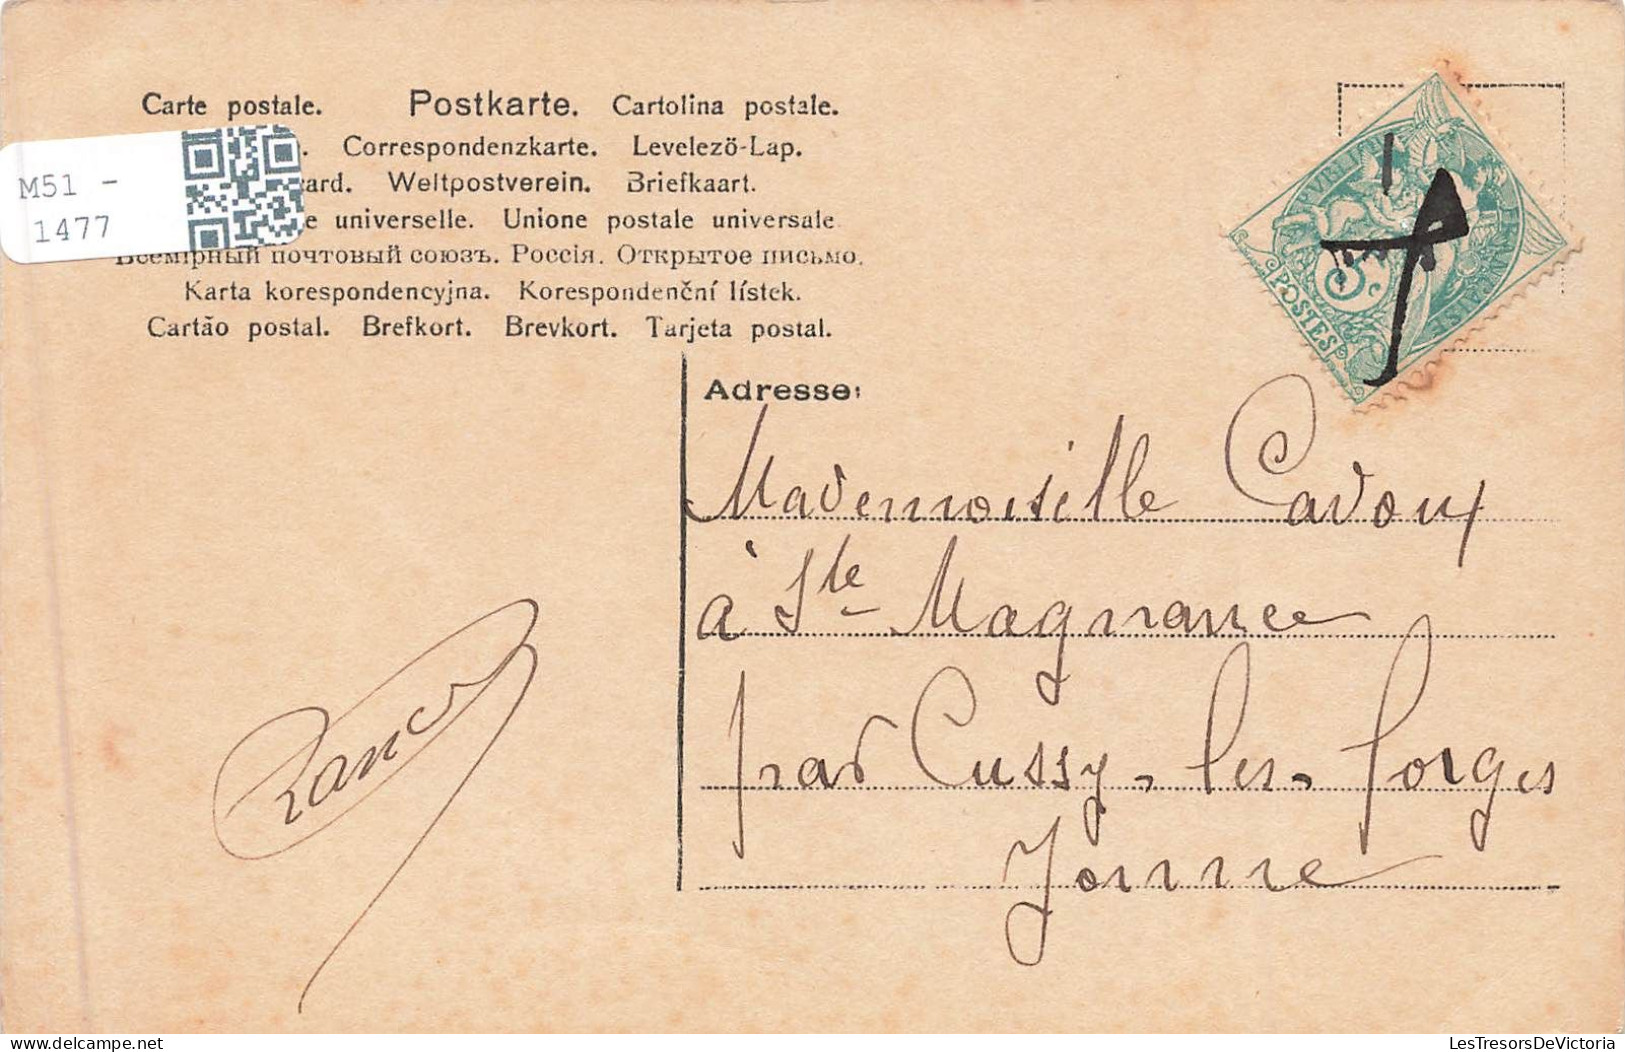 Carte postale. Postkarte. Cartolina postale.
Correspondenzkarte. Levelező-Lap.
card. Weltpostverein. Briefkaart.
e universelle. Unione postale universale
Всемірный почтовый союзъ. Россія. Открытое письмо.
Karta korespondencyjna. Korespondenční lístek.
Cartão postal. Brefkort. Brevkort. Tarjeta postal.
M51 -
1477
POSTES
5c
Adresse:
Mademoiselle Cavoux
à Ste Magnance
par Cussy-les-Forges
Yonne
LesTresorsDeVictoria.com